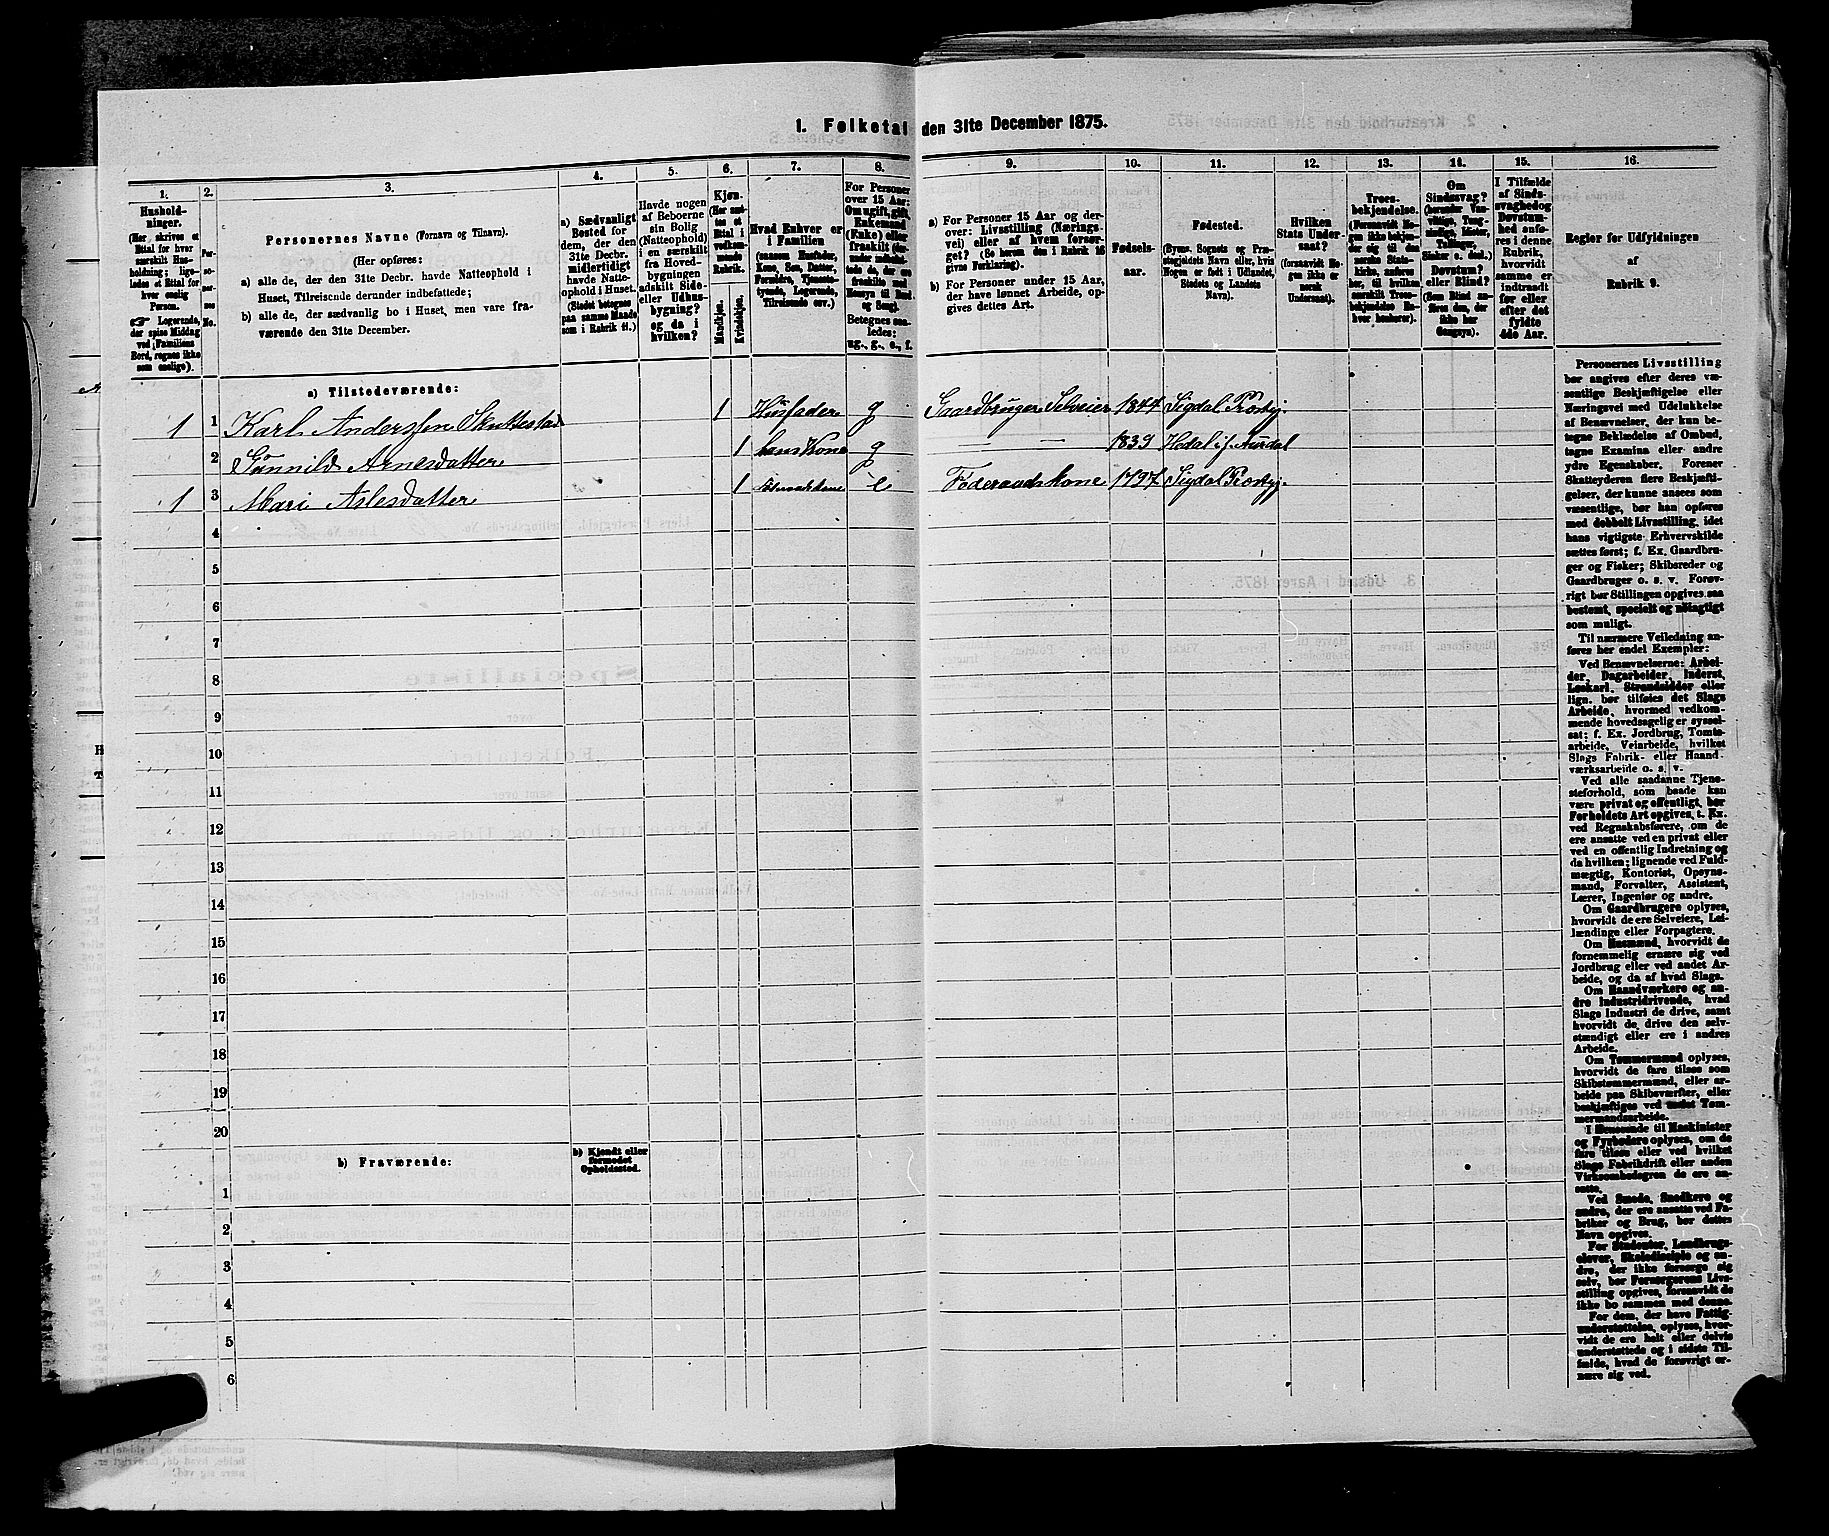 1. Folketal den 31te December 1875.
1. 2. 3. 4. 5. 6. 7. 8. 9. 10. 11. 12. 13. 14. 15. 16.
Hushold-
ninger.
(Her skrives et
Ettal for hver
særskilt Hus-
holdning; lige-
ledes et Ettal for
hver enslig
Person.
☞ Logerende,
der spise Middag
ved Familiens
Bord, regnes ikke
som enslige).
Per-
so-
ner-
nes
No.
Personernes Navne (Fornavn og Tilnavn).
(Her opføres:
a) alle de, der den 31te Decbr. havde Natteophold i
Huset, Tilreisende derunder indbefattede;
b) alle de, der sædvanlig bo i Huset, men vare fra-
værende den 31te December.
a) Sædvanligt
Bosted for
dem, der den
31te Decbr.
midlertidigt
havde Natte-
ophold i Huset.
(Stedet betegnes
paa samme Maade
som i Rubrik 11.)
Havde nogen
af Beboerne
sin Bolig
(Natteophold)
i en særskilt
fra Hoved-
bygningen
adskilt Side-
eller Udhus-
bygning?
og da i
hvilken?
Kjøn.
(Her sæt-
tes et
Ettal i
vedkom-
mende
Rubrik.
Mandkjøn.
Kvindekjøn.
Hvad Enhver er
i Familien
(saasom Husfader,
Kone, Søn, Datter,
Forældre, Tjeneste-
tyende, Logerende,
Tilreisende osv.)
For Personer
over 15 Aar:
Om ugift, gift,
Enkemand
(Enke) eller
fraskilt
Betegnes saa-
ledes:
ug., g., e., f.
a) For Personer 15 Aar og der-
over: Livsstilling (Nærings-
vei) eller af hvem forsør-
get? (Se herom den i Rubrik 16
givne Forklaring).
b) For Personer under 15 Aar,
der have lønnet Arbeide, op-
gives dettes Art.
Fødsels-
aar.
Fødested.
(Byens, Sognets og Præ-
stegjeldets Navn eller, hvis
Nogen er født i Udlandet,
Stedets og Landets
Navn).
Hvilken
Stats Under-
saat?
(forsaavidt No-
gen ikke er
norsk
Undersaat).
Troes-
bekjendelse.
(Forsaavidt No-
gen ikke bekjen-
der sig til den
norske Stats-
kirke, anføres
her, til hvilken
særskilt Troes-
bekjendelse En-
hver henhører).
Om
Sindssvag?
Døvstum?
eller Blind?
(Som Blind an-
føres den, der
ikke har
Gangsyn).
I Tilfælde
af Sinds-
svaghed og
Døvstum-
hed anfø-
res i denne
Rubrik,
hvorvidt
samme er
indtraadt
før eller
efter det
fyldte
4de Aar.
Regler for Udfyldningen
af
Rubrik 9.
a) Tilstedeværende:
1 1 Karl Anderssen Skuttestad 1 Husfader g Gaardbruger Selveier 1844 Sigdal Prstgj.
2 Gunnild Arnesdatter 1 hans Kone g — — 1839 Hedal i s. Aurdal
1 3 Mari Aslesdatter 1 e Føderaadskone 1797 Sigdal Prstgj.
4
5
6
7
8
9
10
11
12
13
14
15
16
17
18
19
20
b) Fraværende:
b) Kjendt eller
formodet
Opholdssted.
1
2
3
4
5
6
Personernes Livsstilling
bør angives efter deres væ-
sentlige Beskjæftigelse eller
Næringsvei med Udelukkelse
af Benævnelser, der kun be-
tegne Beklædelse af Ombud,
tagne Examina eller andre
ydre Egenskaber. Forener
Skatteyderen flere Beskjæfti-
gelser, der kunne ansees som
væsentlige, bør han opføres
med dobbelt Livsstilling, idet
hans vigtigste Erhvervskilde
sættes først; f. Ex. Gaardbru-
ger og Fisker; Skibsreder og
Gaardbruger o. s. v. Forøv-
rigt bør Stillingen opgives saa
bestemt, specielt og nøiagtigt
som muligt.
Til nærmere Veiledning an-
føres her endel Exempler:
Ved Benævnelserne: Arbei-
der, Dagarbeider, Inderst,
Løskarl, Strandsidder eller
lign. bør tilføies det Slags
Arbeide, hvormed vedkom-
mende hovedsagelig er syssel-
sat; f. Ex. Jordbrug, Tomte-
arbeide, Veiarbeide, hvilket
Slags Fabrik- eller Haand-
værksarbeide o. s. v.
Ved alle saadanne Tjene-
steforhold, som baade kan
være privat og offentligt, bør
Forholdets Art opgives, f. Ex.
ved Regnskabsførere, om de
ere ansatte ved en privat eller
ved en offentlig Indretning og
da hvilken; lignende ved Fuld-
mægtig, Kontorist, Opsyns-
mand, Forvalter, Assistent,
Lærer, Ingeniør og andre.
Om Gaardbrugere oplyses,
hvorvidt de ere Selveiere, Lei-
lændinge eller Forpagtere.
Om Husmænd, hvorvidt de
fornemmelig ernære sig ved
Jordbrug eller ved andet Ar-
beide, og da af hvad Slags.
Om Haandværkere og an-
dre Industridrivende, hvad
Slags Industri de drive, samt
hvorvidt de drive den selv-
stændigt eller ere i andres
Arbeide.
Om Tømmermænd oplyses,
hvorvidt de fare tilsøs som
Skibstømmermænd, eller ar-
beide paa Skibsværfter, eller
beskjæftiges ved andet Tøm-
mermandsarbeide.
I Henseende til Maskinister
og Fyrbødere oplyses, om de
fare tilsøs eller ved hvilket
Slags Fabrikdrift eller anden
Virksomhedsgren de ere an-
satte.
Ved Smede, Snedkere og
andre, der ere ansatte ved Fa-
briker og Brug, bør dettes
Navn opgives.
For Studenter, Landbrugs-
elever, Skoledisciple og an-
dre, der ikke forsørge sig
selv, bør Forsørgerens Livs-
stilling opgives, forsaavidt de
ikke bo sammen med denne.
For dem, der have Fattig-
understøttelse, oplyses, hvor-
vidt de ere helt eller delvis
understøttede og i sidste Til-
fælde, hvad de forøvrigt er-
nære sig ved.